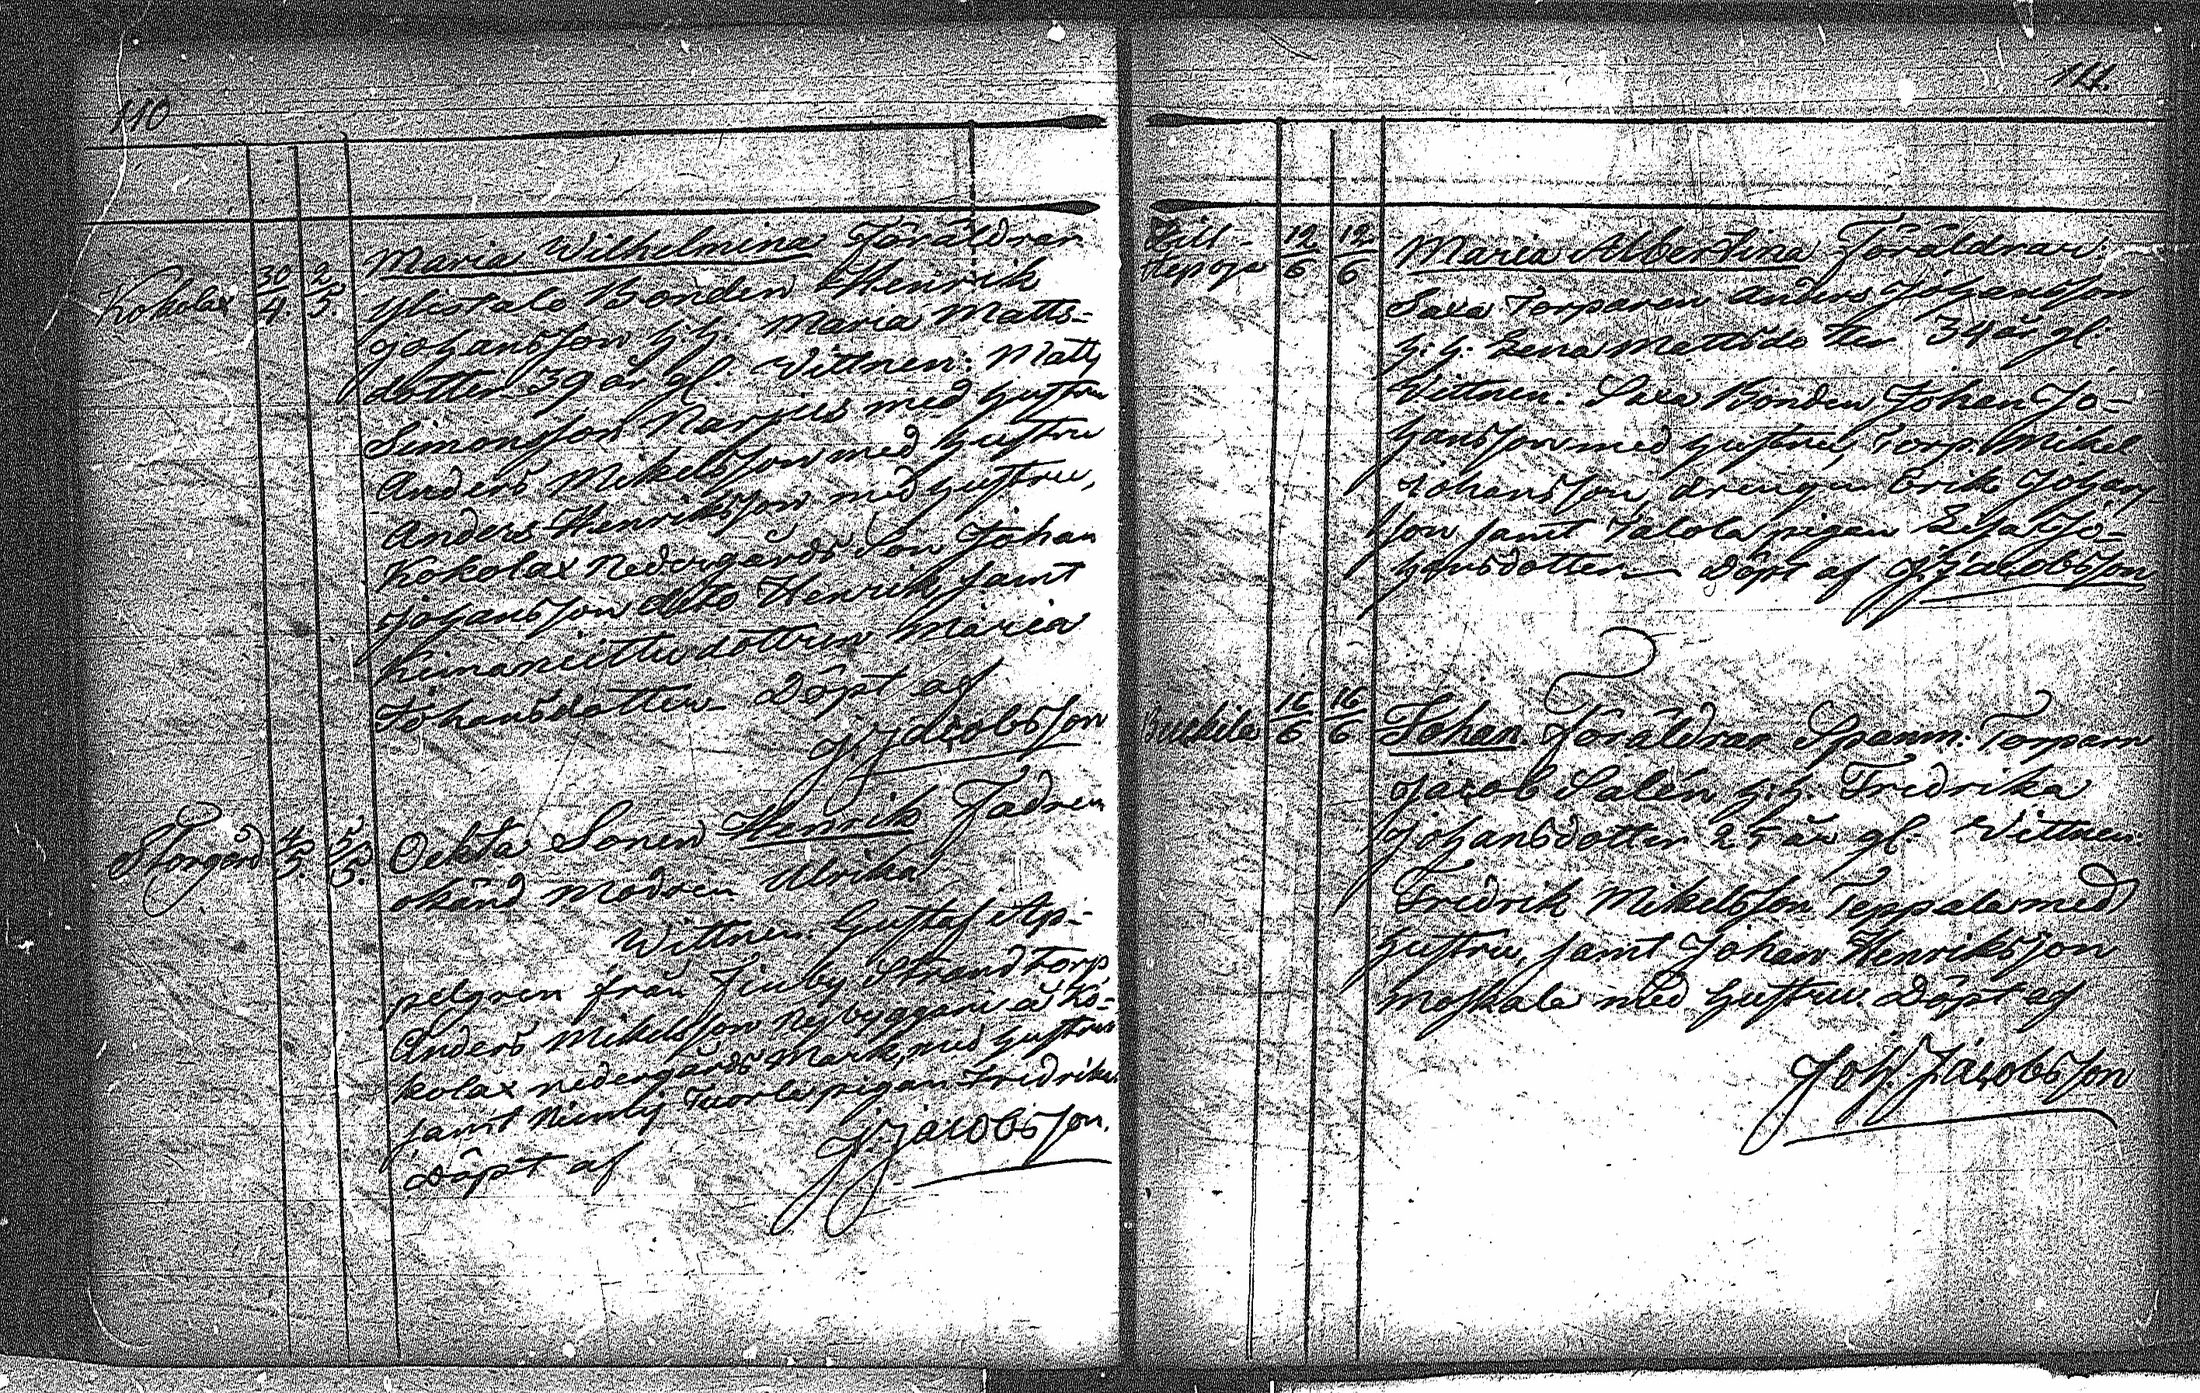 110
Kokolax 30/4. 2/5. Maria Wilhelmina Föräldrar
Ylistalo Bonden Henrik
Johansson h. h. Maria Matts=
dotter 39 år gl. Vittnen: Matts
Simonsson Narjus med hustru
Anders Mikelsson med hustru
Anders Henriksson med hustru,
Kokolax Nedergårds Son Johan
Johansson dito Henrik samt
dottren Maria
Johansdotter Döpt af
J. Jacobsson
Storgård 4/5. 5/5. Oekta Sonen Henrik Fadren
okänd Modren Ulrika
Vittnen: Gustaf Ap=
pelgren från Finby Strand Torp
Anders Mikelsson Nybyggare å Ko=
kolax nedergårds Mark, med hustru
samt Tuorla pigan Fredrika
Döpt af J. Jacobsson.
111.
Lill-
Hepoja 12/6 12/6 Maria Albertina Föräldrar:
Saxa Torparen Anders Johansson
h: h: Lena Mattsdotter 34 år gl.
Vittnen: Saxa Bonden Johan Jo-
hansson med hustru, Torp. Mikel
Johansson, drengen Erik Johans
son samt Talola pigan Lisa Jo-
hansdotter Döpt af J. Jacobsson
16/6 16/6 Johan Föräldrar Spanm. Torparn
Jacob Salén h: h. Fredrika
Johansdotter 25 år gl. Vittnen:
Fredrik Mikelsson Teppala med
hustru, samt Johan Henriksson
Moskala med hustru. Döpt af
Joh. Jacobsson